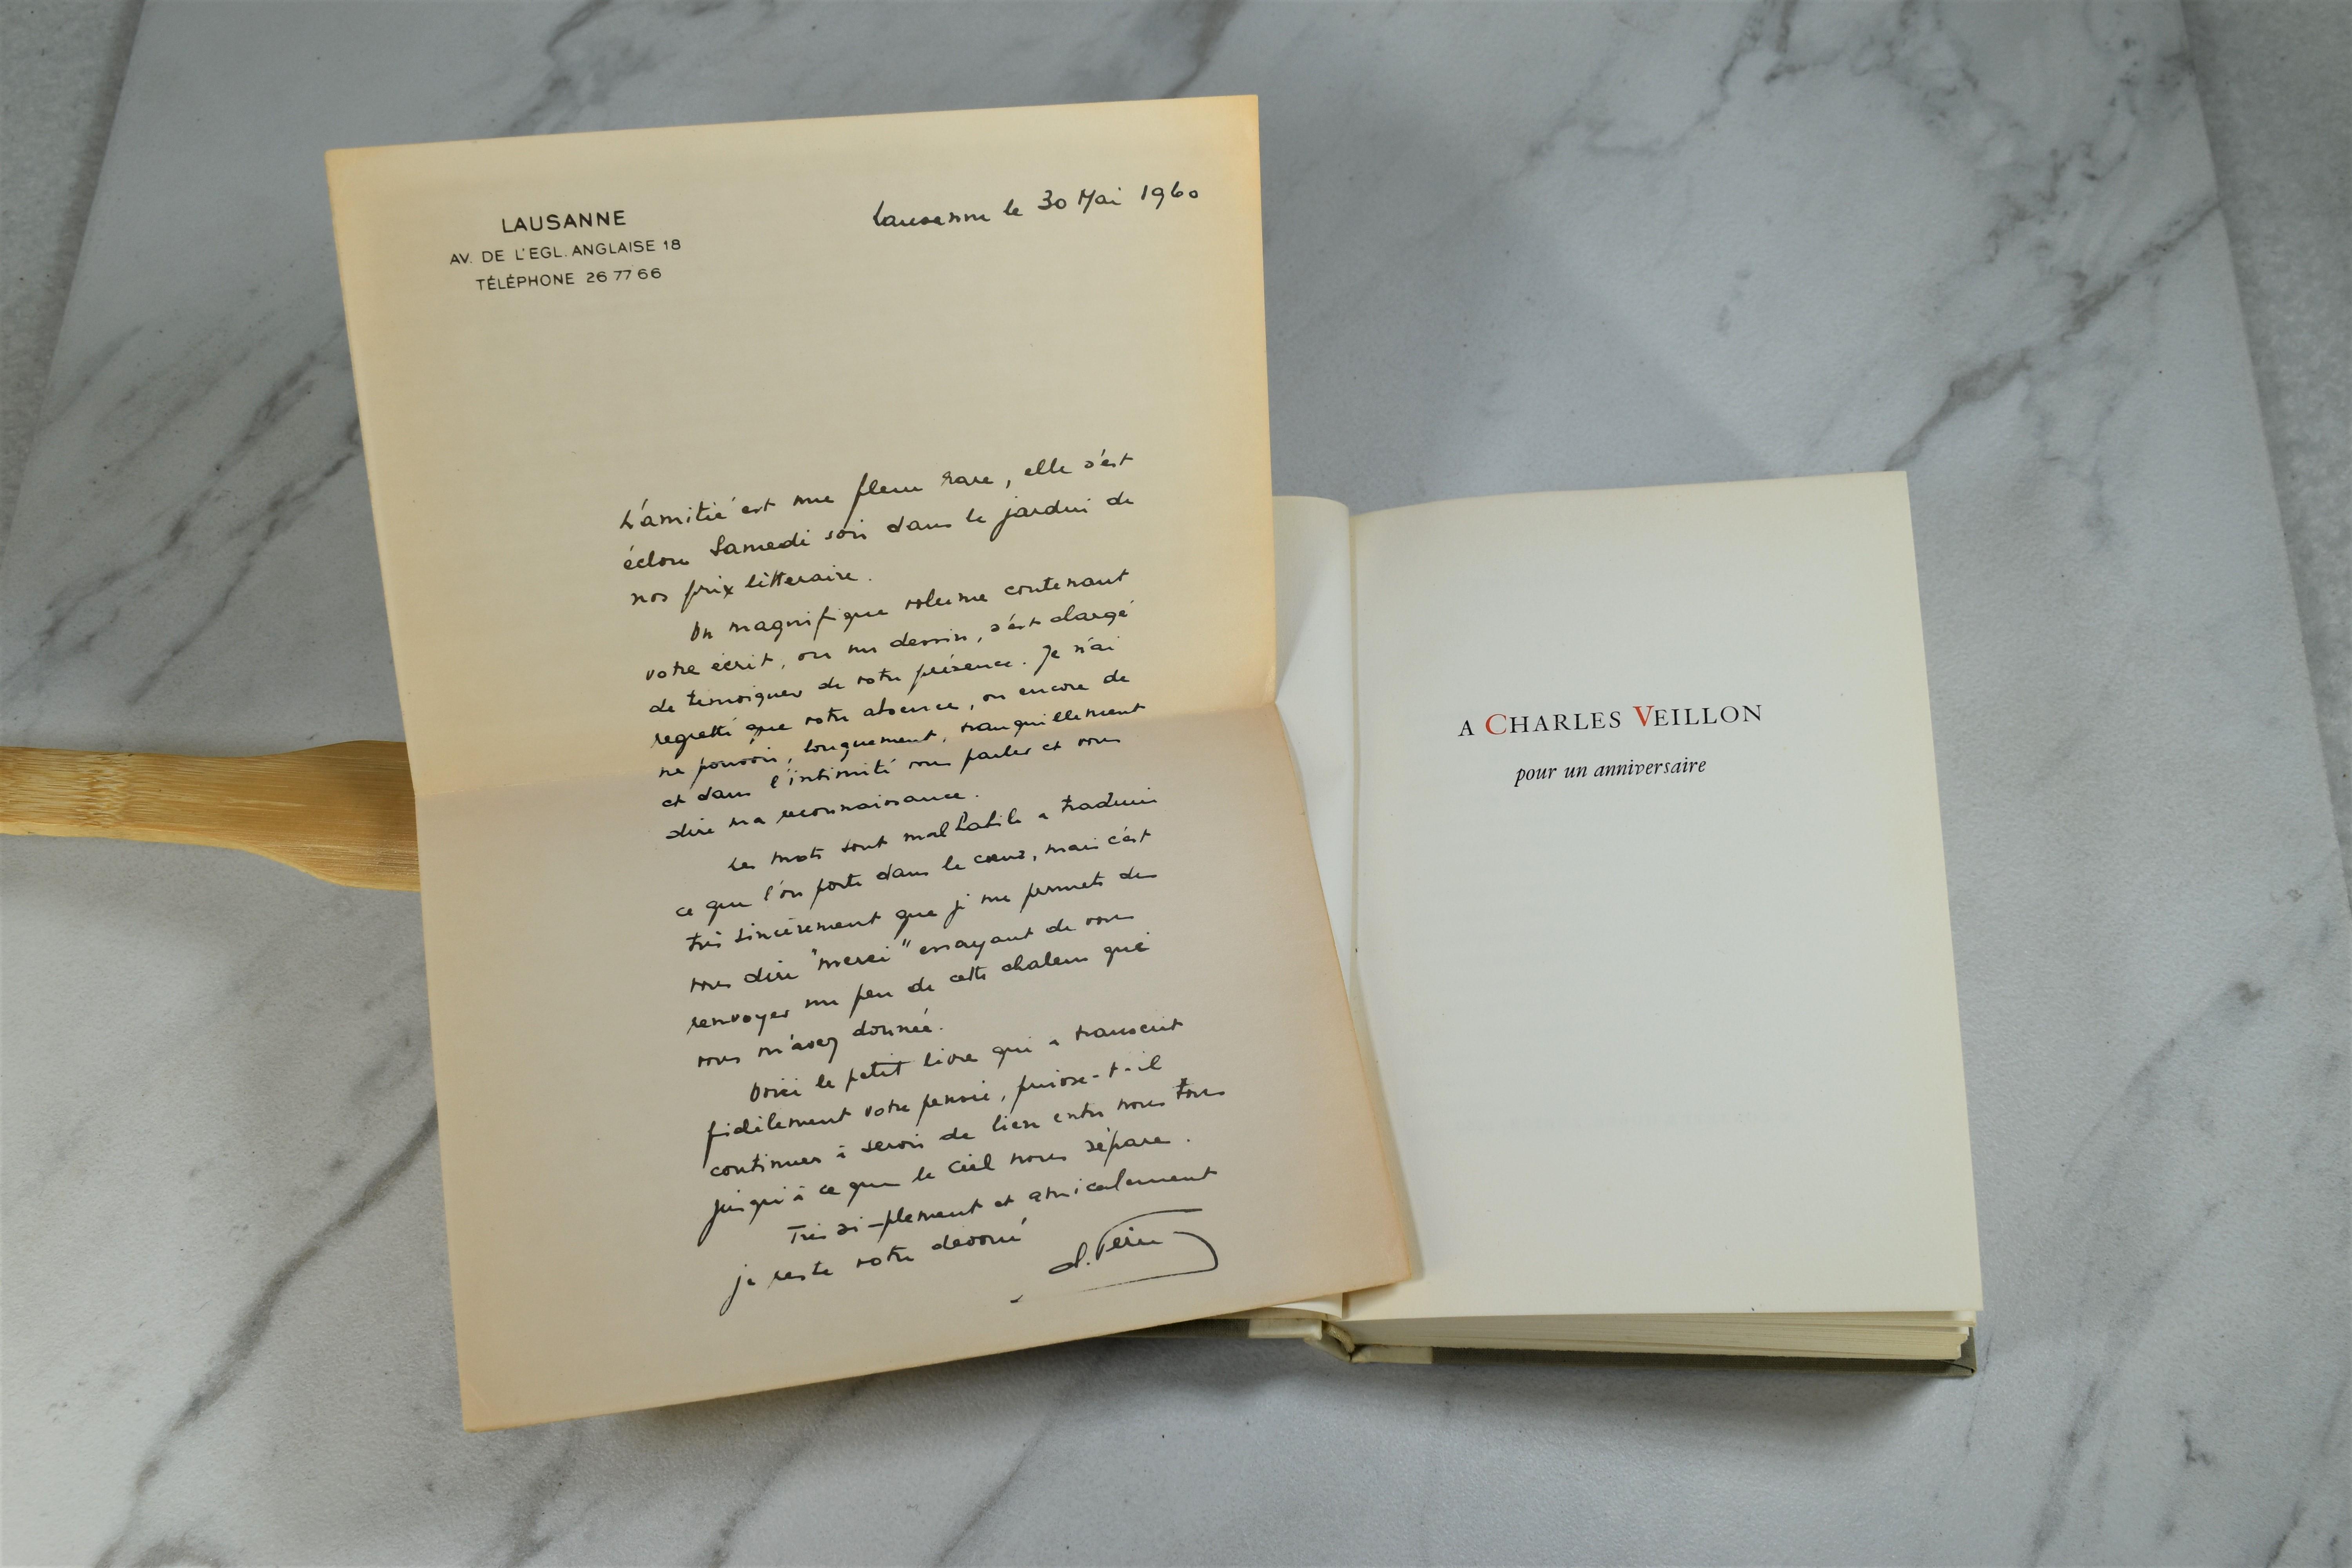 LAUSANNE
AV. DE L'EGL. ANGLAISE 18
TÉLÉPHONE 26 77 66
Lausanne le 30 Mai 1960
L'amitié est une fleur rare, elle s'est
éclose Samedi soir dans le jardin de
nos prix litteraire.
Un magnifique volume contenant
votre écrit, ou un dessin, s'est chargé
de temoigner de votre présence. Je n'ai
regretté que votre absence, ou encore de
ne pouvoir, longuement, tranquillement
et dans l'intimité vous parler et vous
dire ma reconnaissance.
Les mots sont malhabile a traduire
ce que l'on porte dans le cœur, mais c'est
très sincèrement que je me permets de
vous dire "merci" essayant de vous
renvoyer un peu de cette chaleur que
vous m'avez donnée.
Voici le petit livre qui a transcrit
fidèlement votre pensée, puisse-t-il
continuer à servir de lien entre nous tous
jusqu'à ce que le Ciel nous sépare.
Très simplement et amicalement
je reste votre dévoué
A CHARLES VEILLON
pour un anniversaire